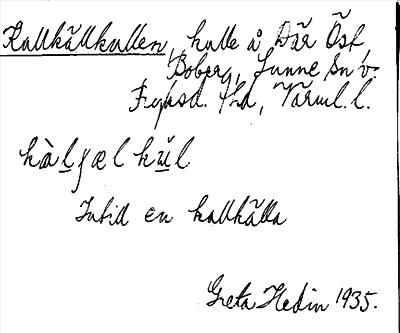 Kallkällkullen, kulle å Där Öst,
Boberg, Sunne sn v.
Fryksd. hd, Värml. l.
hàlʃælkŭl
Intid en kallkälla
Greta Hedin 1935.